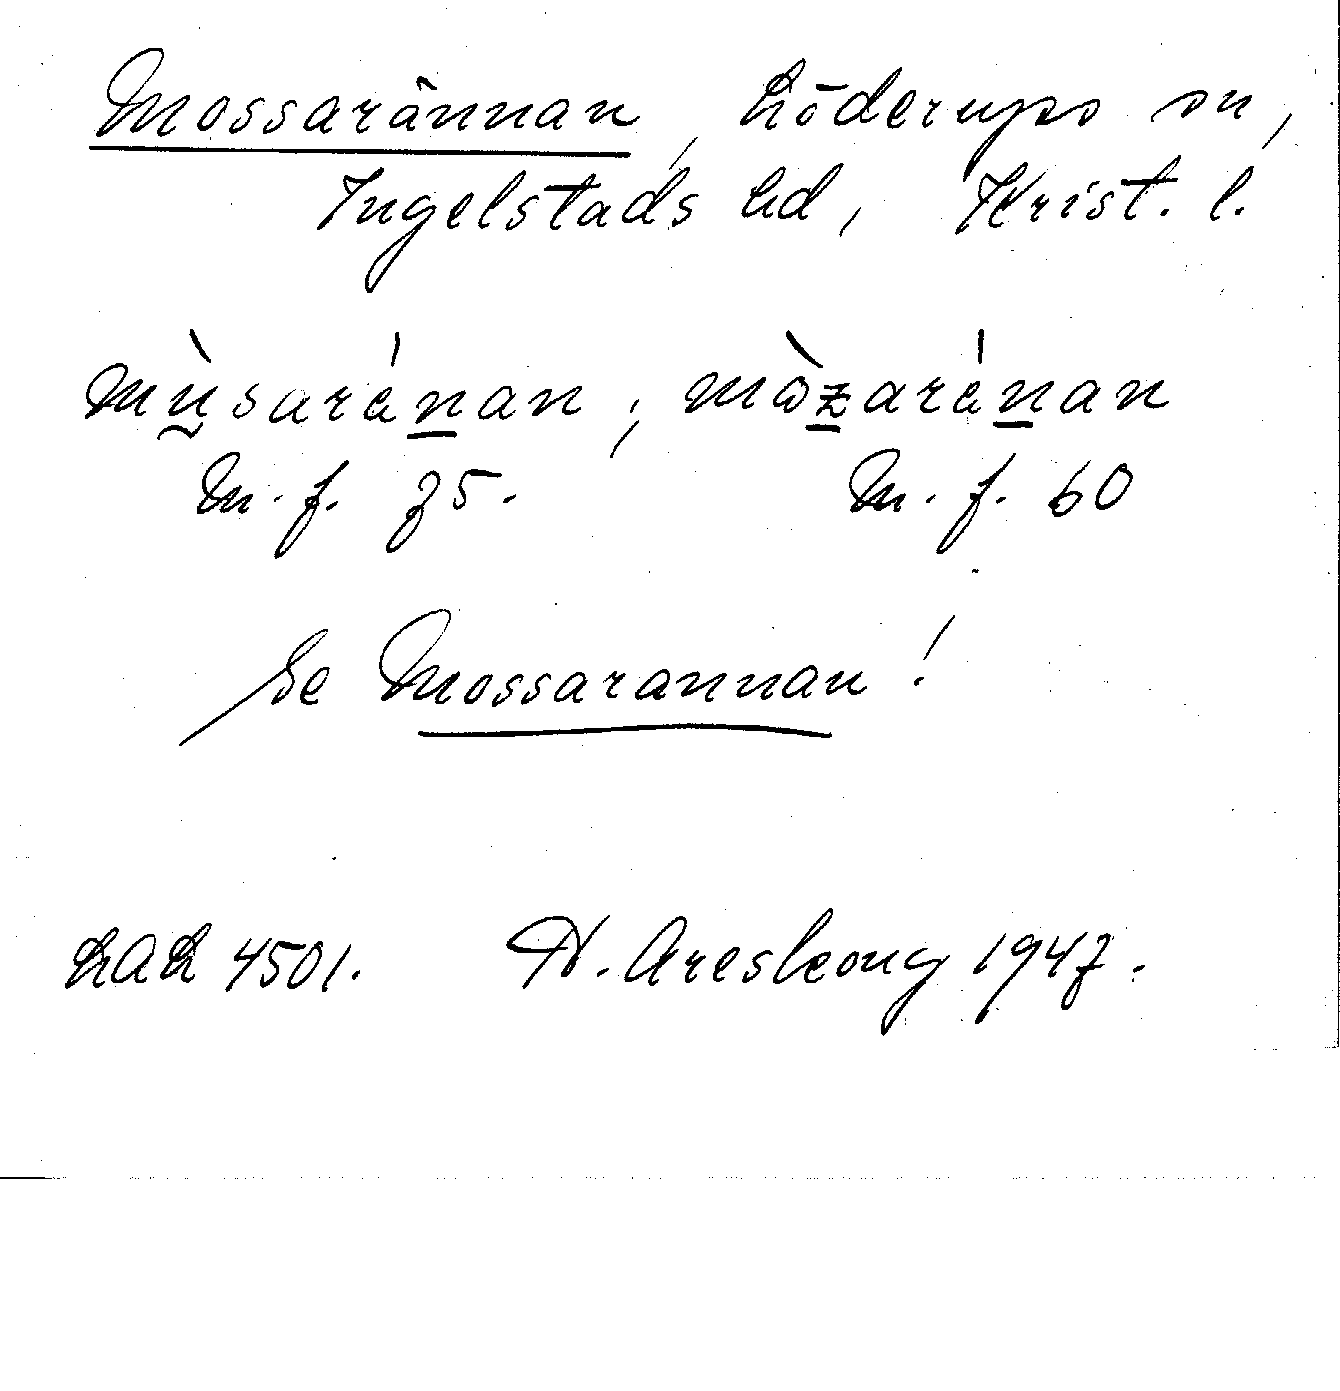 Mossarännan, Löderups sn,
Ingelstads hd, Krist. l.
mùsaránan, mòzaránan
M. f. 75. M. f. 60
Se Mossarannan!
LAL 4501. N. Areskoug 1947.